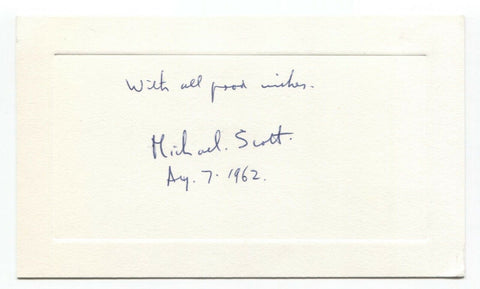 With all good wishes.
Michael. Scott.
Aug. 7. 1962.